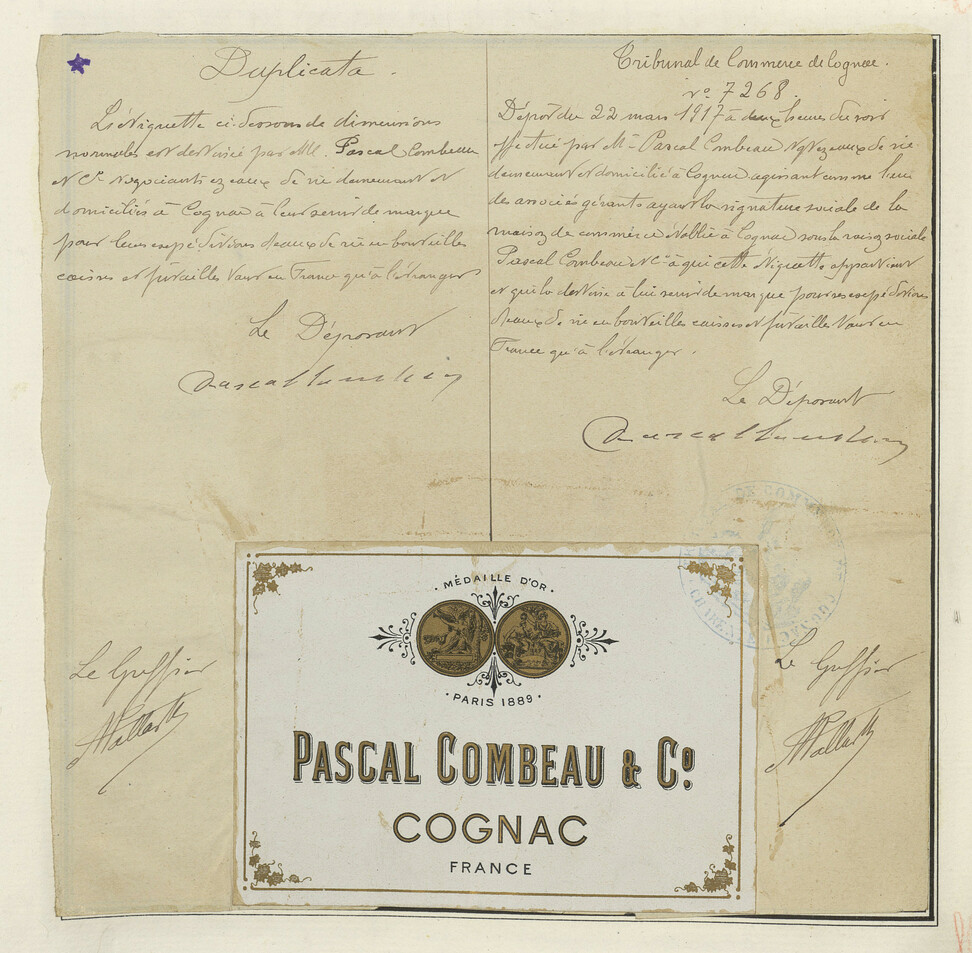 Duplicata.
La Vignette ci-dessous de dimensions
normales est destinée par M. Pascal Combeau
& Cie négociants en eaux de vie demeurant et
domiciliés à Cognac à leur servir de marque
pour leurs expéditions d'eaux de vie en bouteilles
caisses et futailles tant en France qu'à l'étranger
Le Déposant
Pascal Combeau
Le Greffier
Tribunal de Commerce de Cognac.
No 7268.
Dépôt du 22 mars 1917 à deux heures du soir
effectué par Mr Pascal Combeau Ngt en eaux de vie
demeurant et domicilié à Cognac agissant comme l'un
des associés gérants ayant la signature sociale de la
maison de commerce établie à Cognac sous la raison sociale
Pascal Combeau & Cie à qui cette Vignette appartient
et qui la destine à lui servir de marque pour ses expéditions
d'eaux de vie en bouteilles caisses et futailles tant en
France qu'à l'étranger.
Le Déposant
Pascal Combeau
Le Greffier
MÉDAILLE D'OR
PARIS 1889
PASCAL COMBEAU & Co
COGNAC
FRANCE